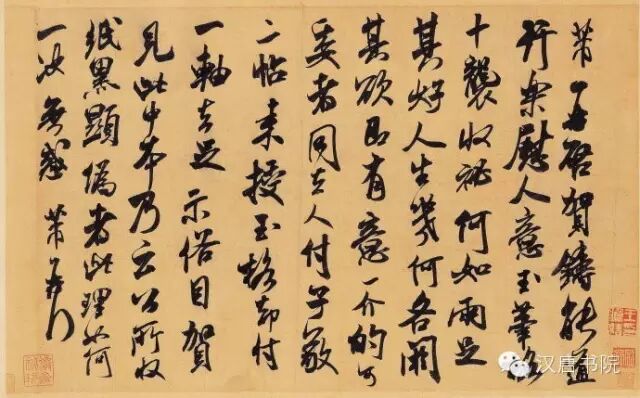 芾再啓賀鑄能道
行樂慰人意玉筆格
十襲收祕何如兩足
其好人生幾何各閼
其欲即有意一介的可
委者同去人付子敬
二帖來授玉格却付
一軸去足示俗目賀
見此中本乃云公所收
紙黑顯偽者此理如何
一決無惑 芾再行
汉唐书院